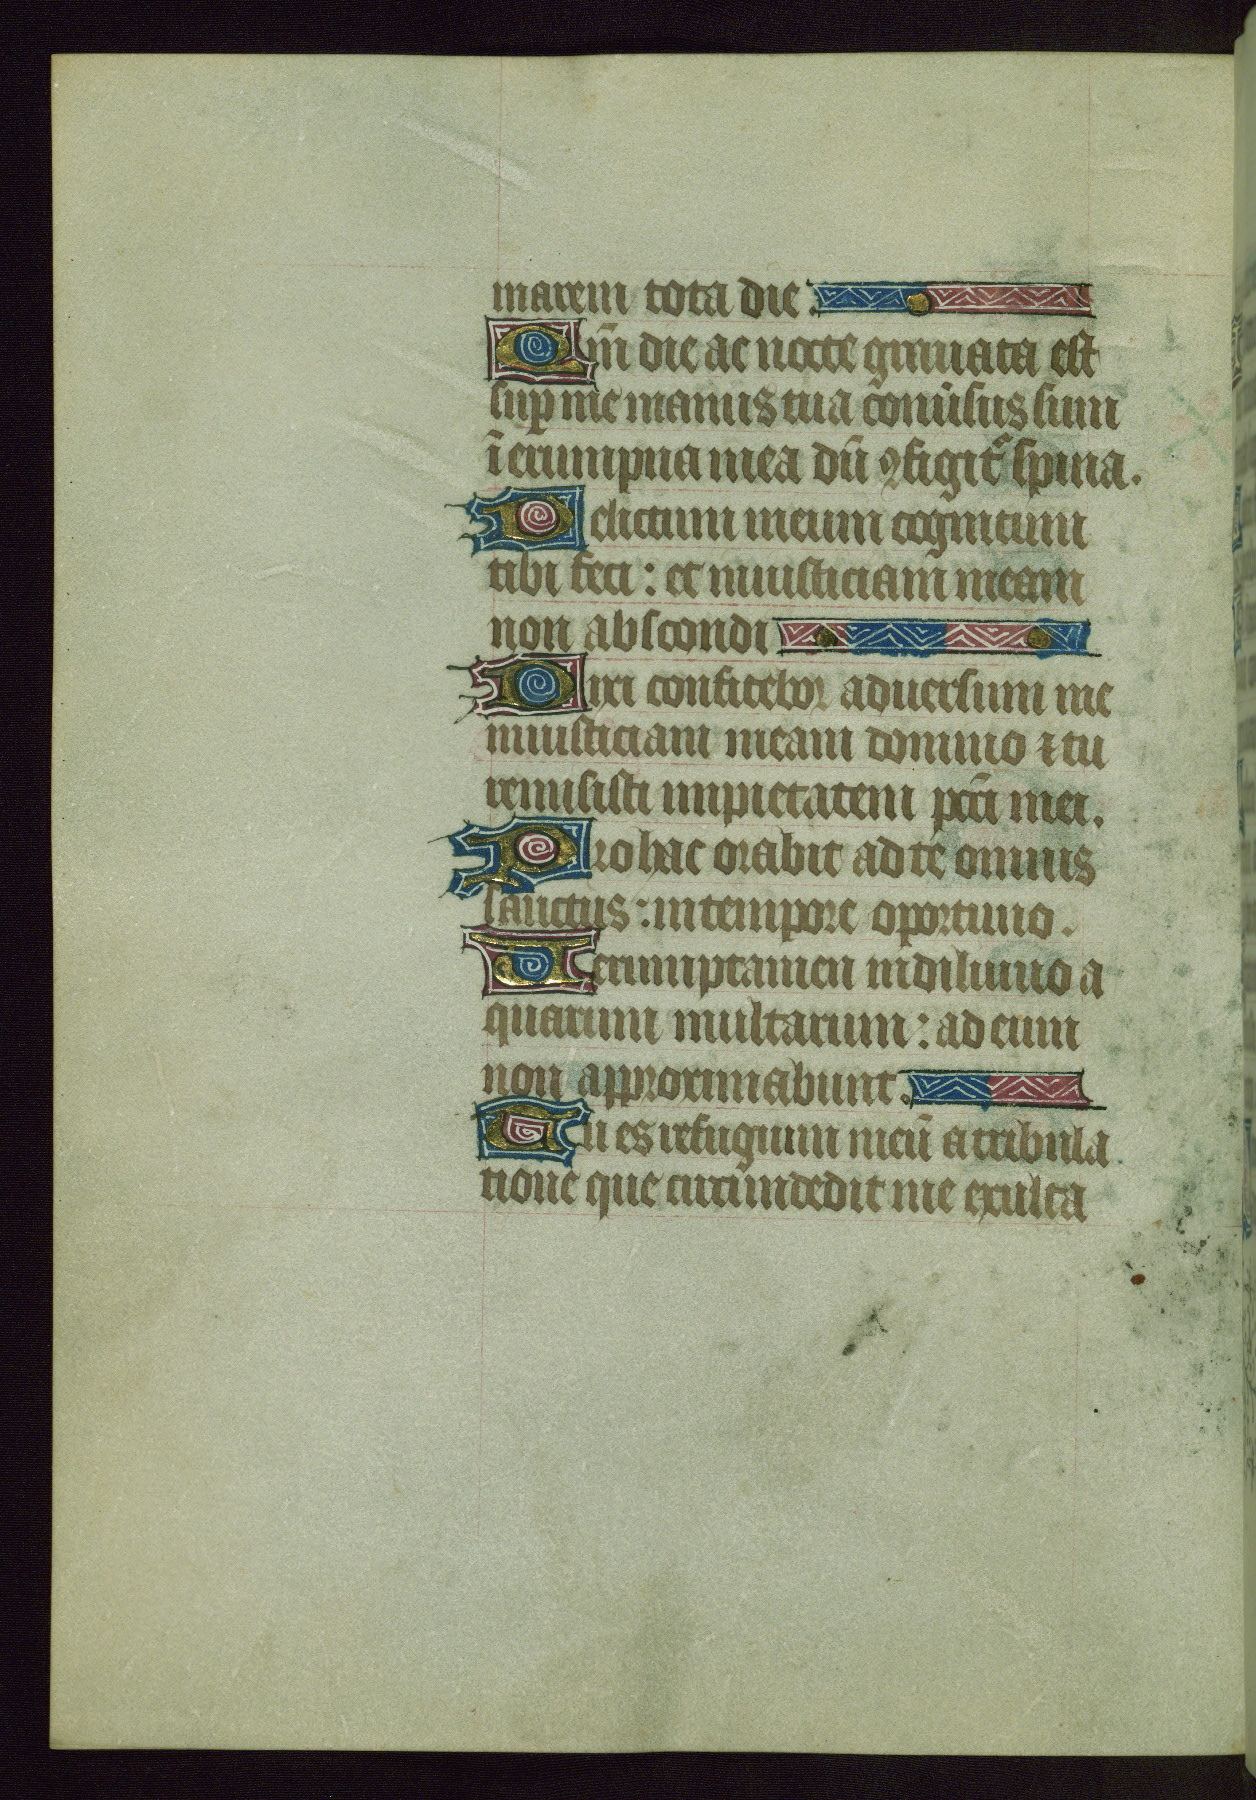 marem tota die.
Qm̄ die ac nocte grauata est
sup̱ me manus tua c̄onuīsus sum
ī erumpna mea dū ꝯfigit᷑ spina.
Delictum meum cognitum
tibi feci : et iniusticiam meam
non abscondi
Dixi confitebor aduersum me
iniusticiam meam domino ⁊ tu
remisisti impietatem pcc̄i mei.
Pro hac orabit ad te omnis
sanctus : in tempore oportuno.
Uerumptamen in diluuio a
quarum multarum : ad eum
non approximabunt.
Tu es refugium meū a tribula
tione que circūndedit me exulta